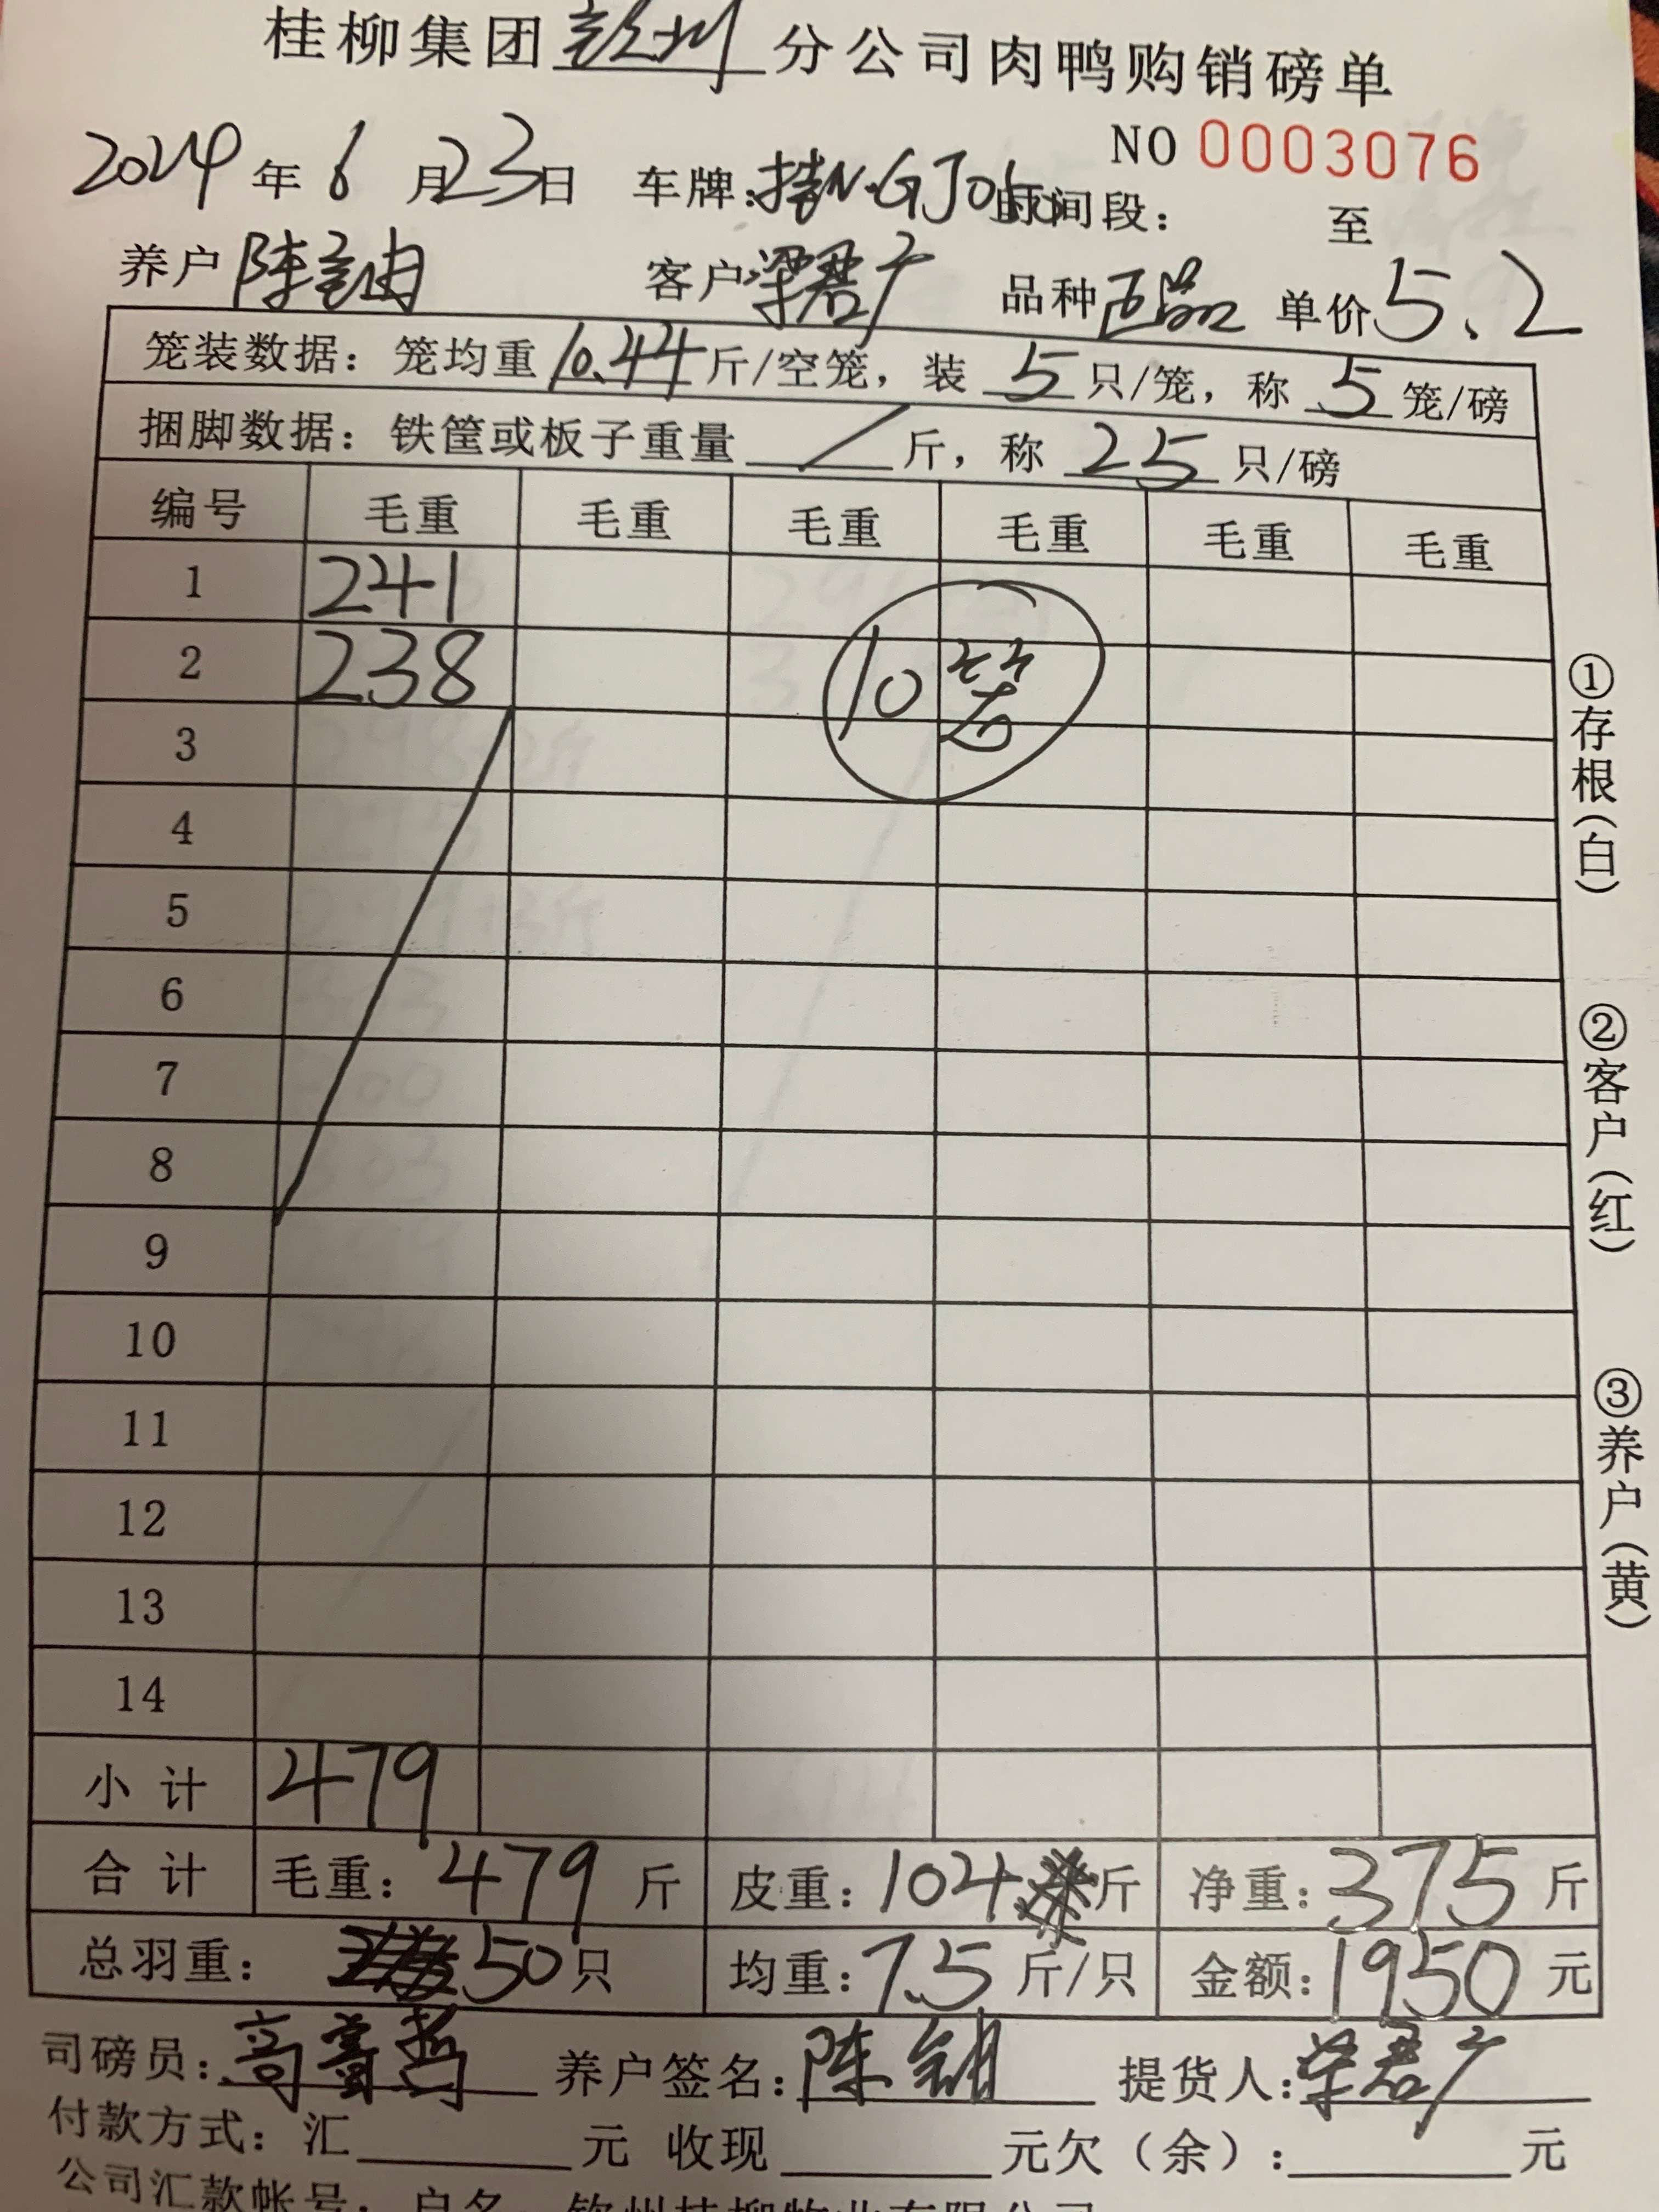 桂柳集团钦州分公司肉鸭购销磅单
NO 0003076
2024年6月23日 车牌：桂N·GJ0 时间段： 至
养户陈 客户梁君广 品种西品 单价5.2
笼装数据：笼均重10.44斤/空笼，装5只/笼，称5笼/磅
捆脚数据：铁筐或板子重量/斤，称25只/磅
编号 毛重 毛重 毛重 毛重 毛重 毛重
1 241
2 238 10笼
3
4
5
6
7
8
9
10
11
12
13
14
小计 479
合计 毛重：479斤 皮重：104斤 净重：375斤
总羽重：50只 均重：7.5斤/只 金额：1950元
司磅员：高 养户签名：陈 提货人：梁君广
付款方式：汇 元 收现 元欠（余）： 元
公司汇款帐号：户名：钦州桂柳牧业有限公司
①存根（白）
②客户（红）
③养户（黄）